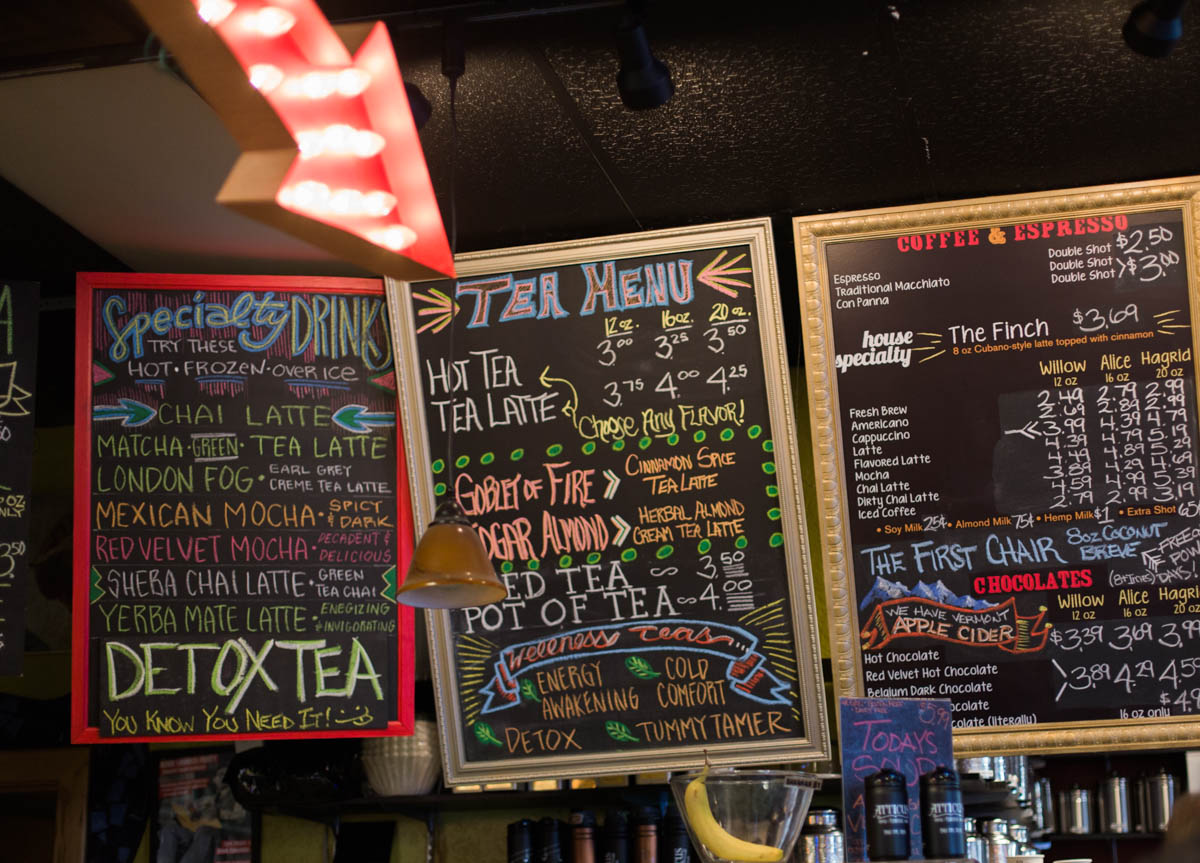 Specialty DRINKS
TRY THESE
HOT · FROZEN · OVER ICE
CHAI LATTE
MATCHA · GREEN · TEA LATTE
LONDON FOG · EARL GREY
CREME TEA LATTE
MEXICAN MOCHA · SPICY
& DARK
RED VELVET MOCHA · DECADENT &
DELICIOUS
SHEBA CHAI LATTE · GREEN
TEA CHAI
YERBA MATE LATTE · ENEGIZING
& INVIGORATING
DETOX TEA
YOU KNOW YOU NEED IT!
TEA MENU
12 oz. 16 oz. 20 oz.
HOT TEA 3.00 3.25 3.50
TEA LATTE 3.75 4.00 4.25
CHOOSE ANY FLAVOR!
GOBLET OF FIRE » CINNAMON SPICE
TEA LATTE
ALMOND » HERBAL ALMOND
CREAM TEA LATTE
TEA ~ 3.50
POT OF TEA ~ 4.00
WELLNESS TEAS
ENERGY
AWAKENING
COLD
COMFORT
DETOX
TUMMY TAMER
COFFEE & ESPRESSO
Espresso Double Shot $2.50
Traditional Macchiato Double Shot
Con Panna Double Shot $3.00
house
specialty
The Finch $3.69
8 oz Cubano-style latte topped with cinnamon
Willow Alice Hagrid
12 oz 16 oz 20 oz
Fresh Brew 2.49 2.79 2.99
Americano 2.69 2.89 2.99
Cappuccino 3.99 4.39 4.79
Latte
Flavored Latte 4.39 4.79 5.19
Mocha
Chai Latte
Dirty Chai Latte
Iced Coffee 2.79 2.99 3.19
• Soy Milk 25¢ • Almond Milk 75¢ • Hemp Milk $1 • Extra Shot
THE FIRST CHAIR 8oz COCONUT
BREVE
CHOCOLATES
WE HAVE VERMONT
APPLE CIDER
Willow Alice Hagrid
12 oz 16 oz 20 oz
Hot Chocolate $3.39 3.69 3.99
Red Velvet Hot Chocolate 3.89 4.29 4.59
Belgium Dark Chocolate
colate (literally) 16 oz only
TODAYS
SOUP
ATTICUS
ATTICUS